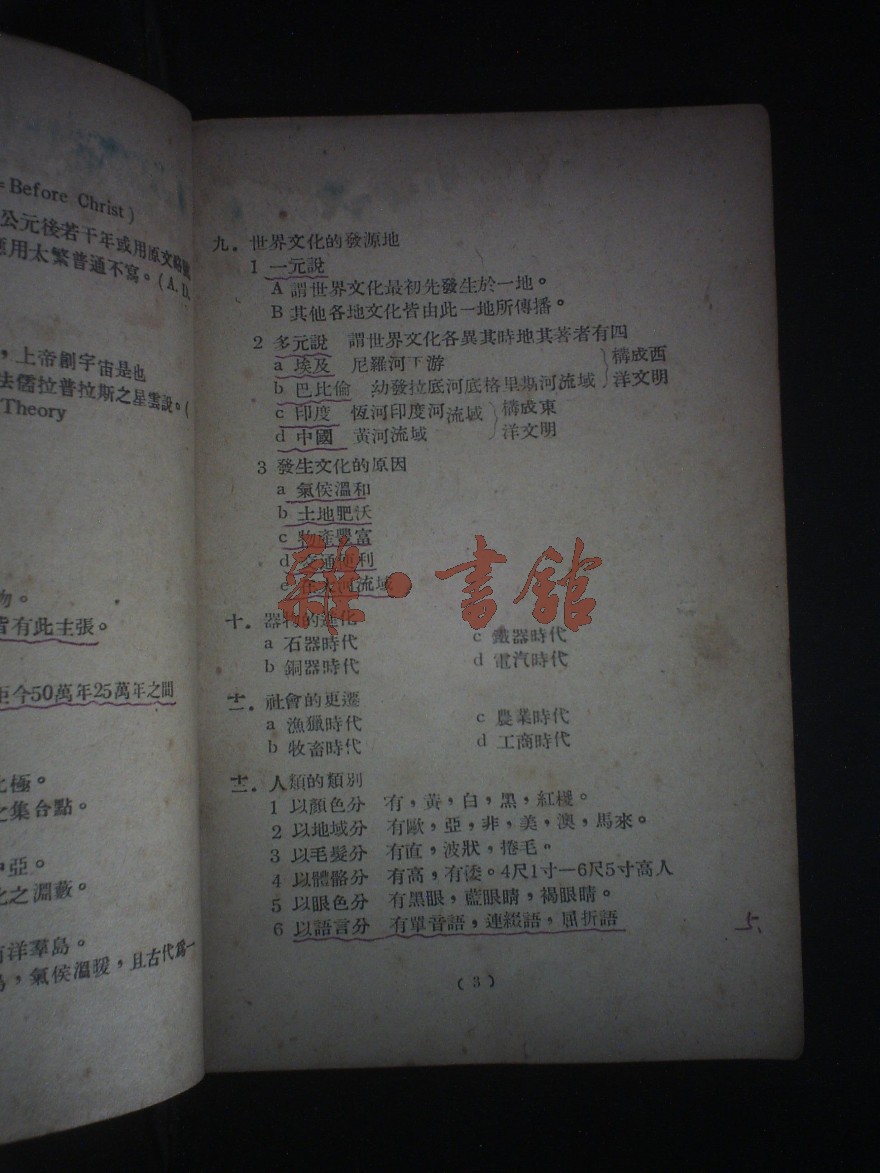 =Before Christ)
公元後若干年或用原文略號
應用太繁普通不寫。(A.D.
，上帝創宇宙是也
法儒拉普拉斯之星雲說。(
Theory
物。
皆有此主張。
距今50萬年25萬年之間
北極。
之集合點。
中亞。
化之淵藪。
南洋羣島。
，氣侯溫暖，且古代爲一
九．世界文化的發源地
1 一元說
A 謂世界文化最初先發生於一地。
B 其他各地文化皆由此一地所傳播。
2 多元說 謂世界文化各異其時地其著者有四
a 埃及 尼羅河下游
b 巴比倫 幼發拉底河底格里斯河流域
構成西
洋文明
c 印度 恆河印度河流域
d 中國 黃河流域
構成東
洋文明
3 發生文化的原因
a 氣侯溫和
b 土地肥沃
c 物產豐富
d 交通便利
e 在大河流域
雜·書館
十．器物的進化
a 石器時代
b 銅器時代
c 鐵器時代
d 電汽時代
十一．社會的更遷
a 漁獵時代
b 牧畜時代
c 農業時代
d 工商時代
十二．人類的類別
1 以顏色分 有，黃，白，黑，紅椶。
2 以地域分 有歐，亞，非，美，澳，馬來。
3 以毛髮分 有直，波狀，捲毛。
4 以體骼分 有高，有倭。4尺1寸—6尺5寸高人
5 以眼色分 有黑眼，藍眼睛，褐眼睛。
6 以語言分 有單音語，連綴語，屈折語
5.
(3)